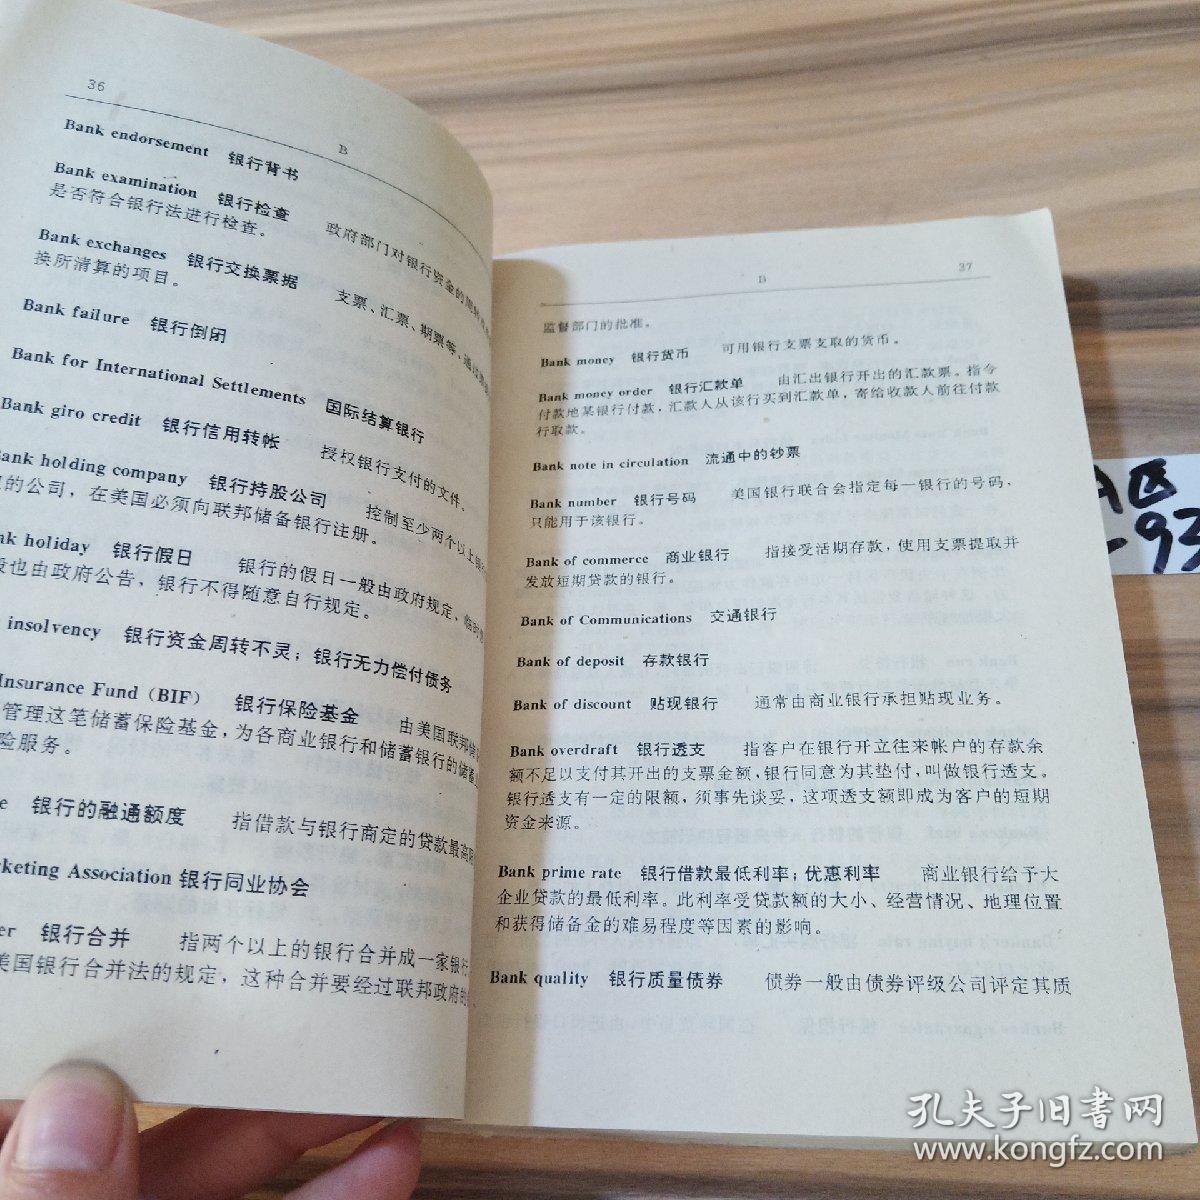 36
B
Bank endorsement 银行背书
Bank examination 银行检查 政府部门对银行资金的
是否符合银行法进行检查。
Bank exchanges 银行交换票据 支票、汇票、期票等，通过
换所清算的项目。
Bank failure 银行倒闭
Bank for International Settlements 国际结算银行
Bank giro credit 银行信用转帐 授权银行支付的文件。
ank holding company 银行持股公司 控制至少两个以上银
的公司，在美国必须向联邦储备银行注册。
nk holiday 银行假日 银行的假日一般由政府规定，临时
也由政府公告，银行不得随意自行规定。
insolvency 银行资金周转不灵；银行无力偿付债务
Insurance Fund (BIF) 银行保险基金 由美国联邦储
管理这笔储蓄保险基金，为各商业银行和储蓄银行的储蓄
险服务。
e 银行的融通额度 指借款与银行商定的贷款最高
keting Association 银行同业协会
er 银行合并 指两个以上的银行合并成一家银行
美国银行合并法的规定，这种合并要经过联邦政府的
B
37
监督部门的批准。
Bank money 银行货币 可用银行支票支取的货币。
Bank money order 银行汇款单 由汇出银行开出的汇款票。指令
付款地某银行付款，汇款人从该行买到汇款单，寄给收款人前往付款
行取款。
Bank note in circulation 流通中的钞票
Bank number 银行号码 美国银行联合会指定每一银行的号码，
只能用于该银行。
Bank of commerce 商业银行 指接受活期存款，使用支票提取并
发放短期贷款的银行。
Bank of Communications 交通银行
Bank of deposit 存款银行
Bank of discount 贴现银行 通常由商业银行承担贴现业务。
Bank overdraft 银行透支 指客户在银行开立往来帐户的存款余
额不足以支付其开出的支票金额，银行同意为其垫付，叫做银行透支。
银行透支有一定的限额，须事先谈妥，这项透支额即成为客户的短期
资金来源。
Bank prime rate 银行借款最低利率；优惠利率 商业银行给予大
企业贷款的最低利率。此利率受贷款额的大小、经营情况、地理位置
和获得储备金的难易程度等因素的影响。
Bank quality 银行质量债券 债券一般由债券评级公司评定其质
A区
-93
孔夫子旧书网
www.kongfz.com